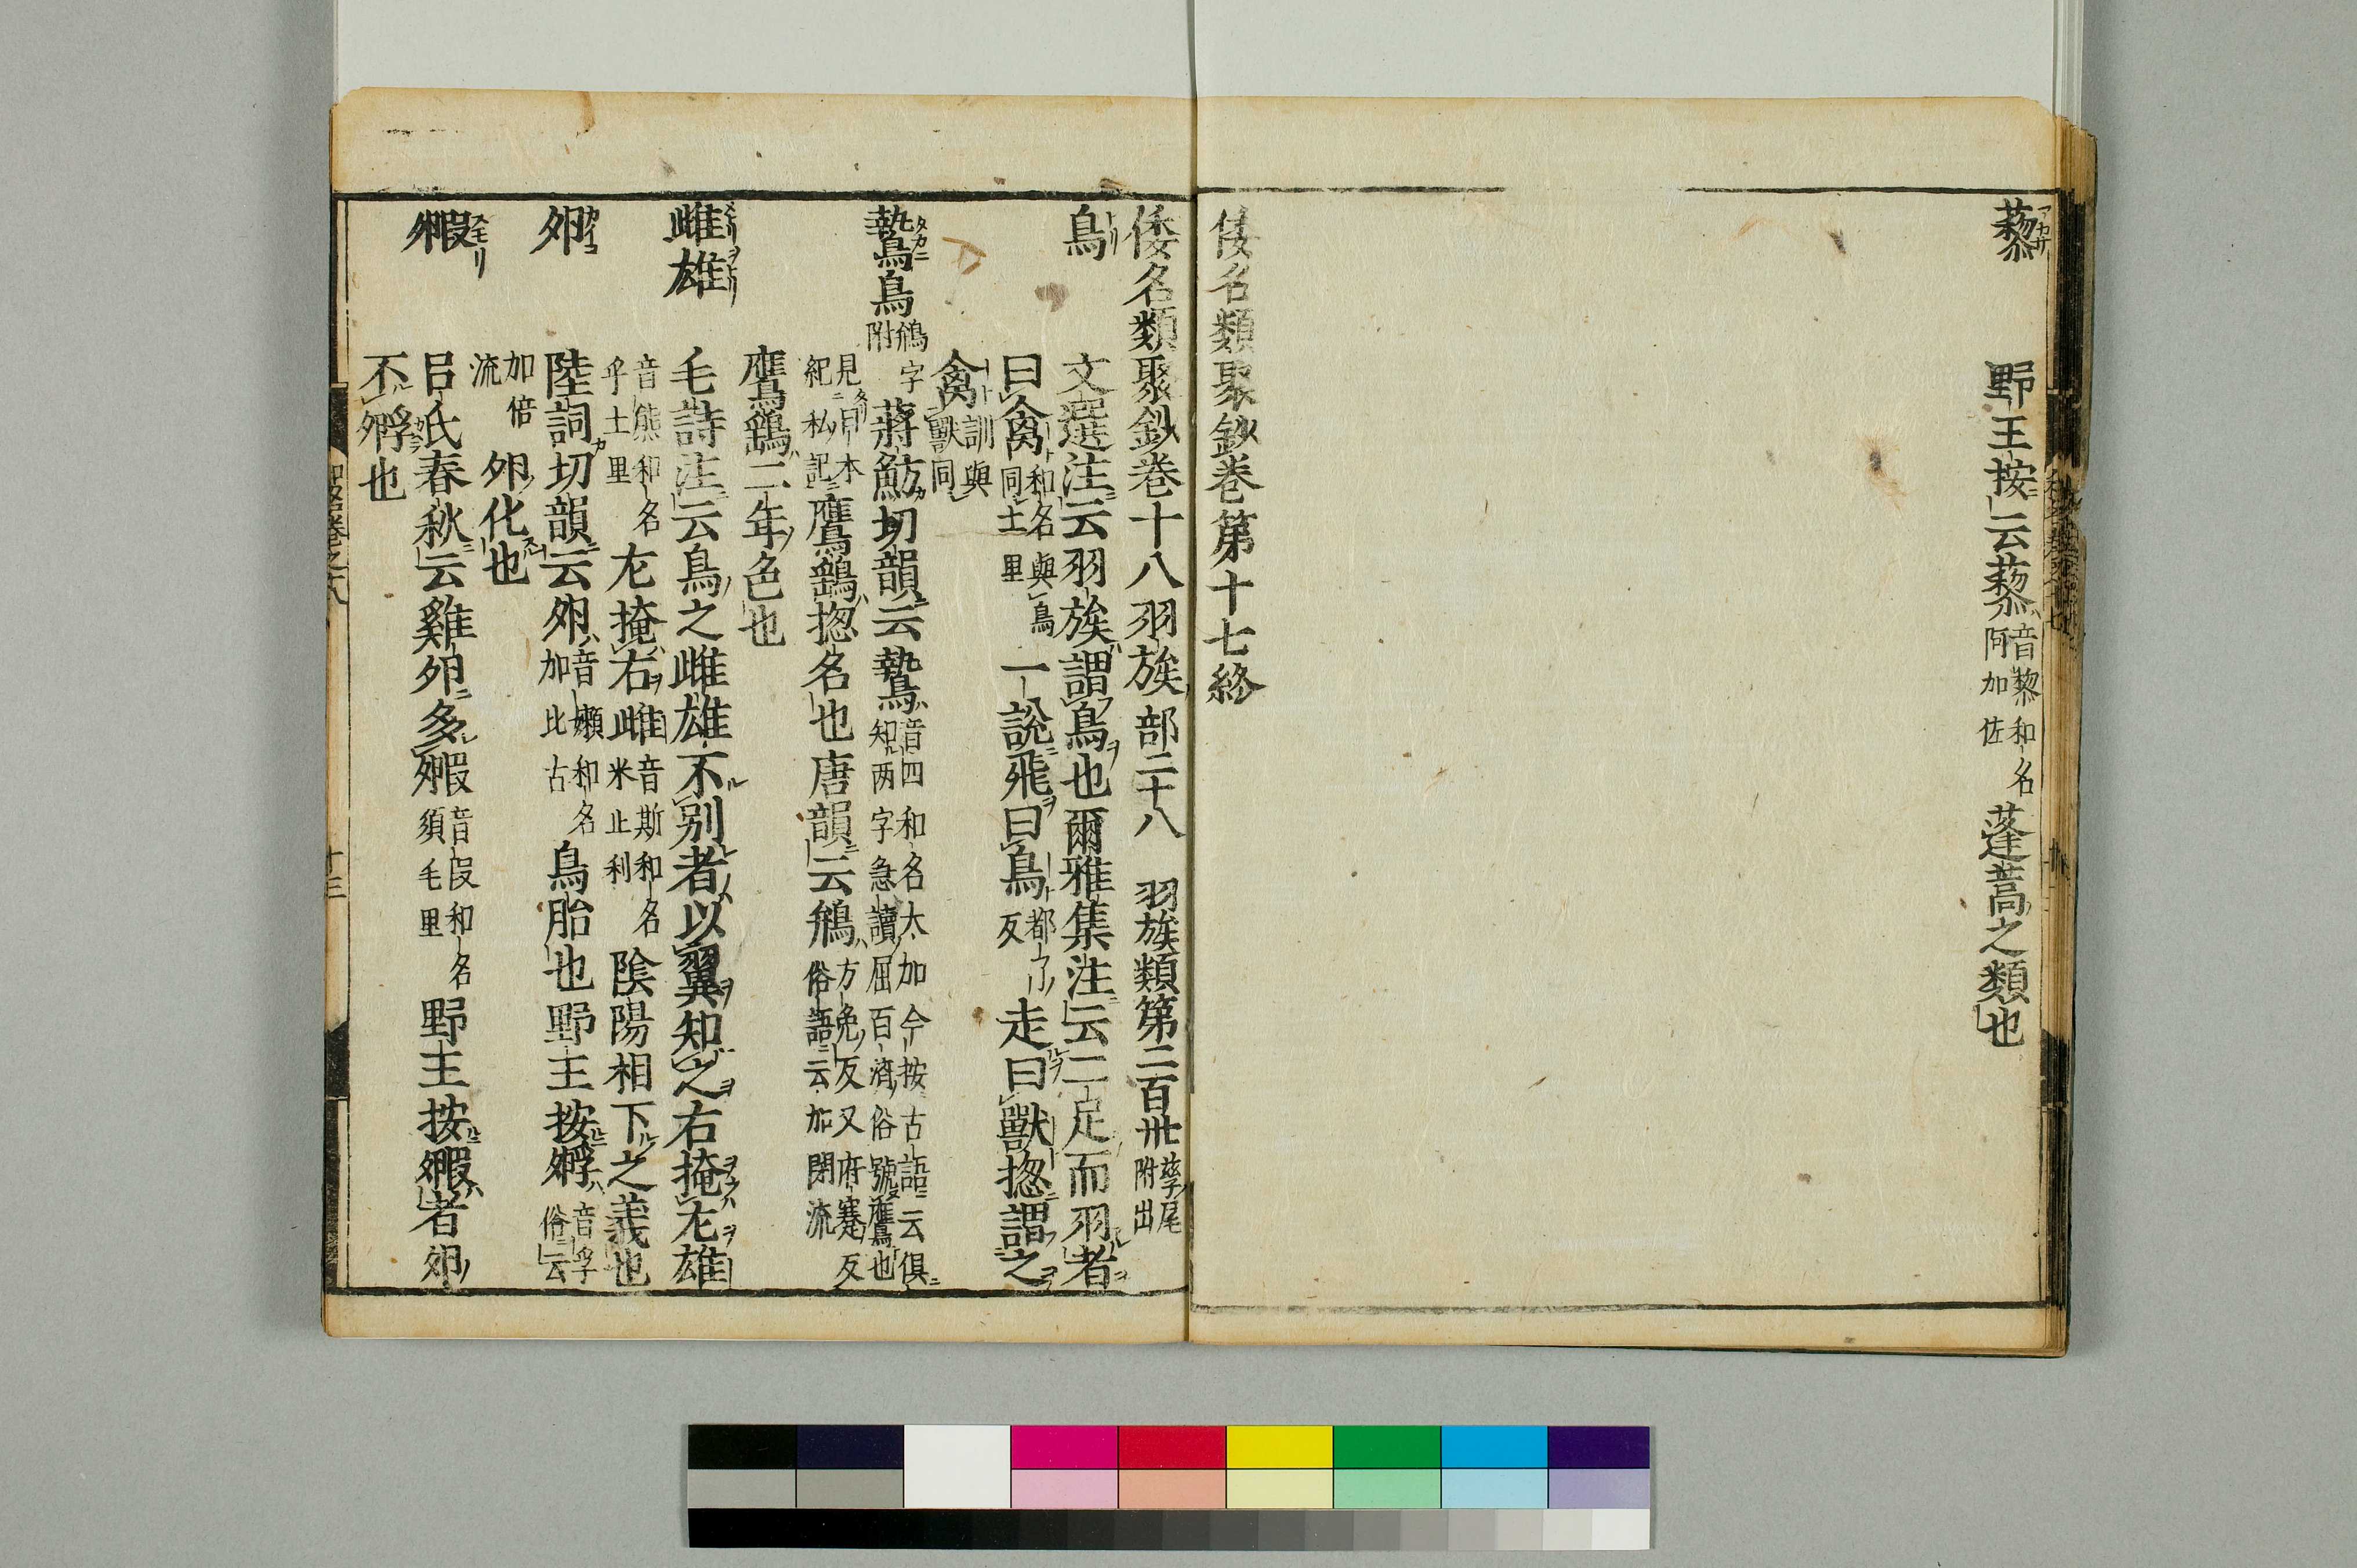 藜 野王按云藜音黎和名阿加佐蓬蒿之類也
倭名類聚鈔巻第十七終
倭名類聚鈔巻十八羽族部二十八 羽族類第二百卅孳尾附出
鳥 文選注云羽族謂鳥也爾雅集注云二足而羽者
曰禽和名與鳥同土里一說飛曰鳥都了反走曰獸揔謂之
禽訓與獸同
鷙鳥鵃字附 蔣魴切韻云鷙音四和名太加今按古語云倶知両字急讀屈百濟俗號鷹也
見日本紀私記鷹鷂揔名也唐韻云鵃方免反又府蹇反俗語云加閉流
鷹鷂二年色也
雌雄 毛詩注云鳥之雌雄不別者以翼知之右掩左雄
音熊和名乎土里左掩右雌音斯和名米止利陰陽相下之義也
卵 陸詞切韻云卵音嬾和名加比古鳥胎也野王按孵音孚俗云
加倍流卵化也
毈 呂氏春秋云雞卵多毈音段和名須毛里野王按毈者卵
不孵也
十三